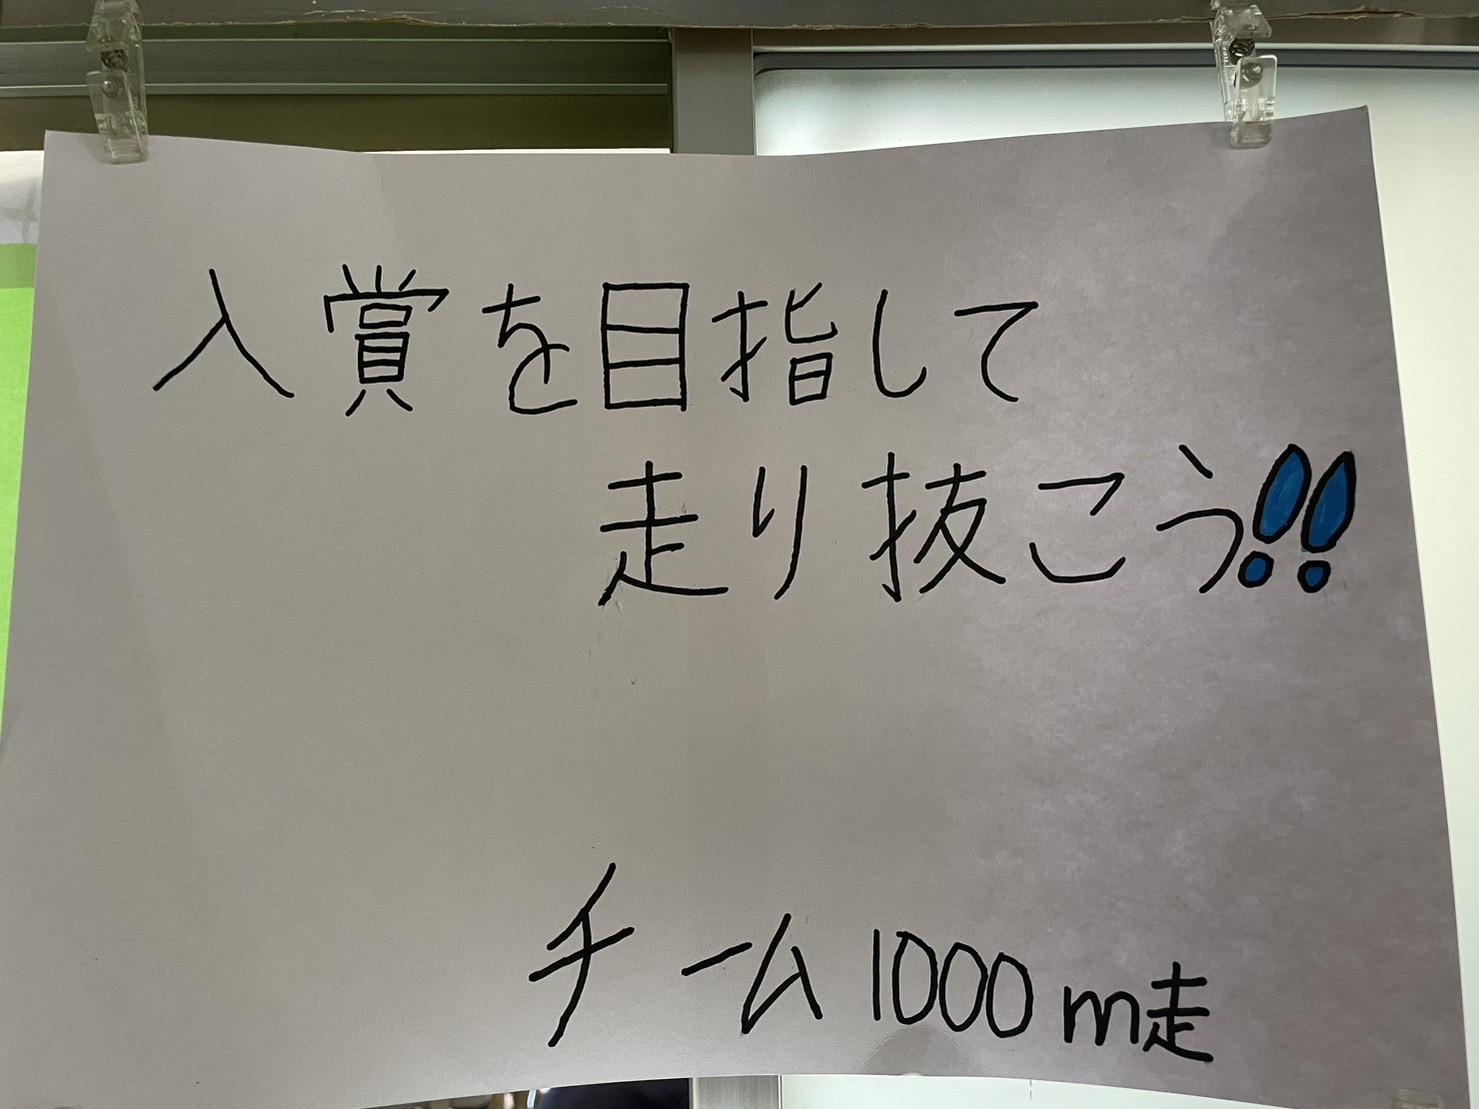 入賞を目指して
走り抜こう!!
チーム1000m走